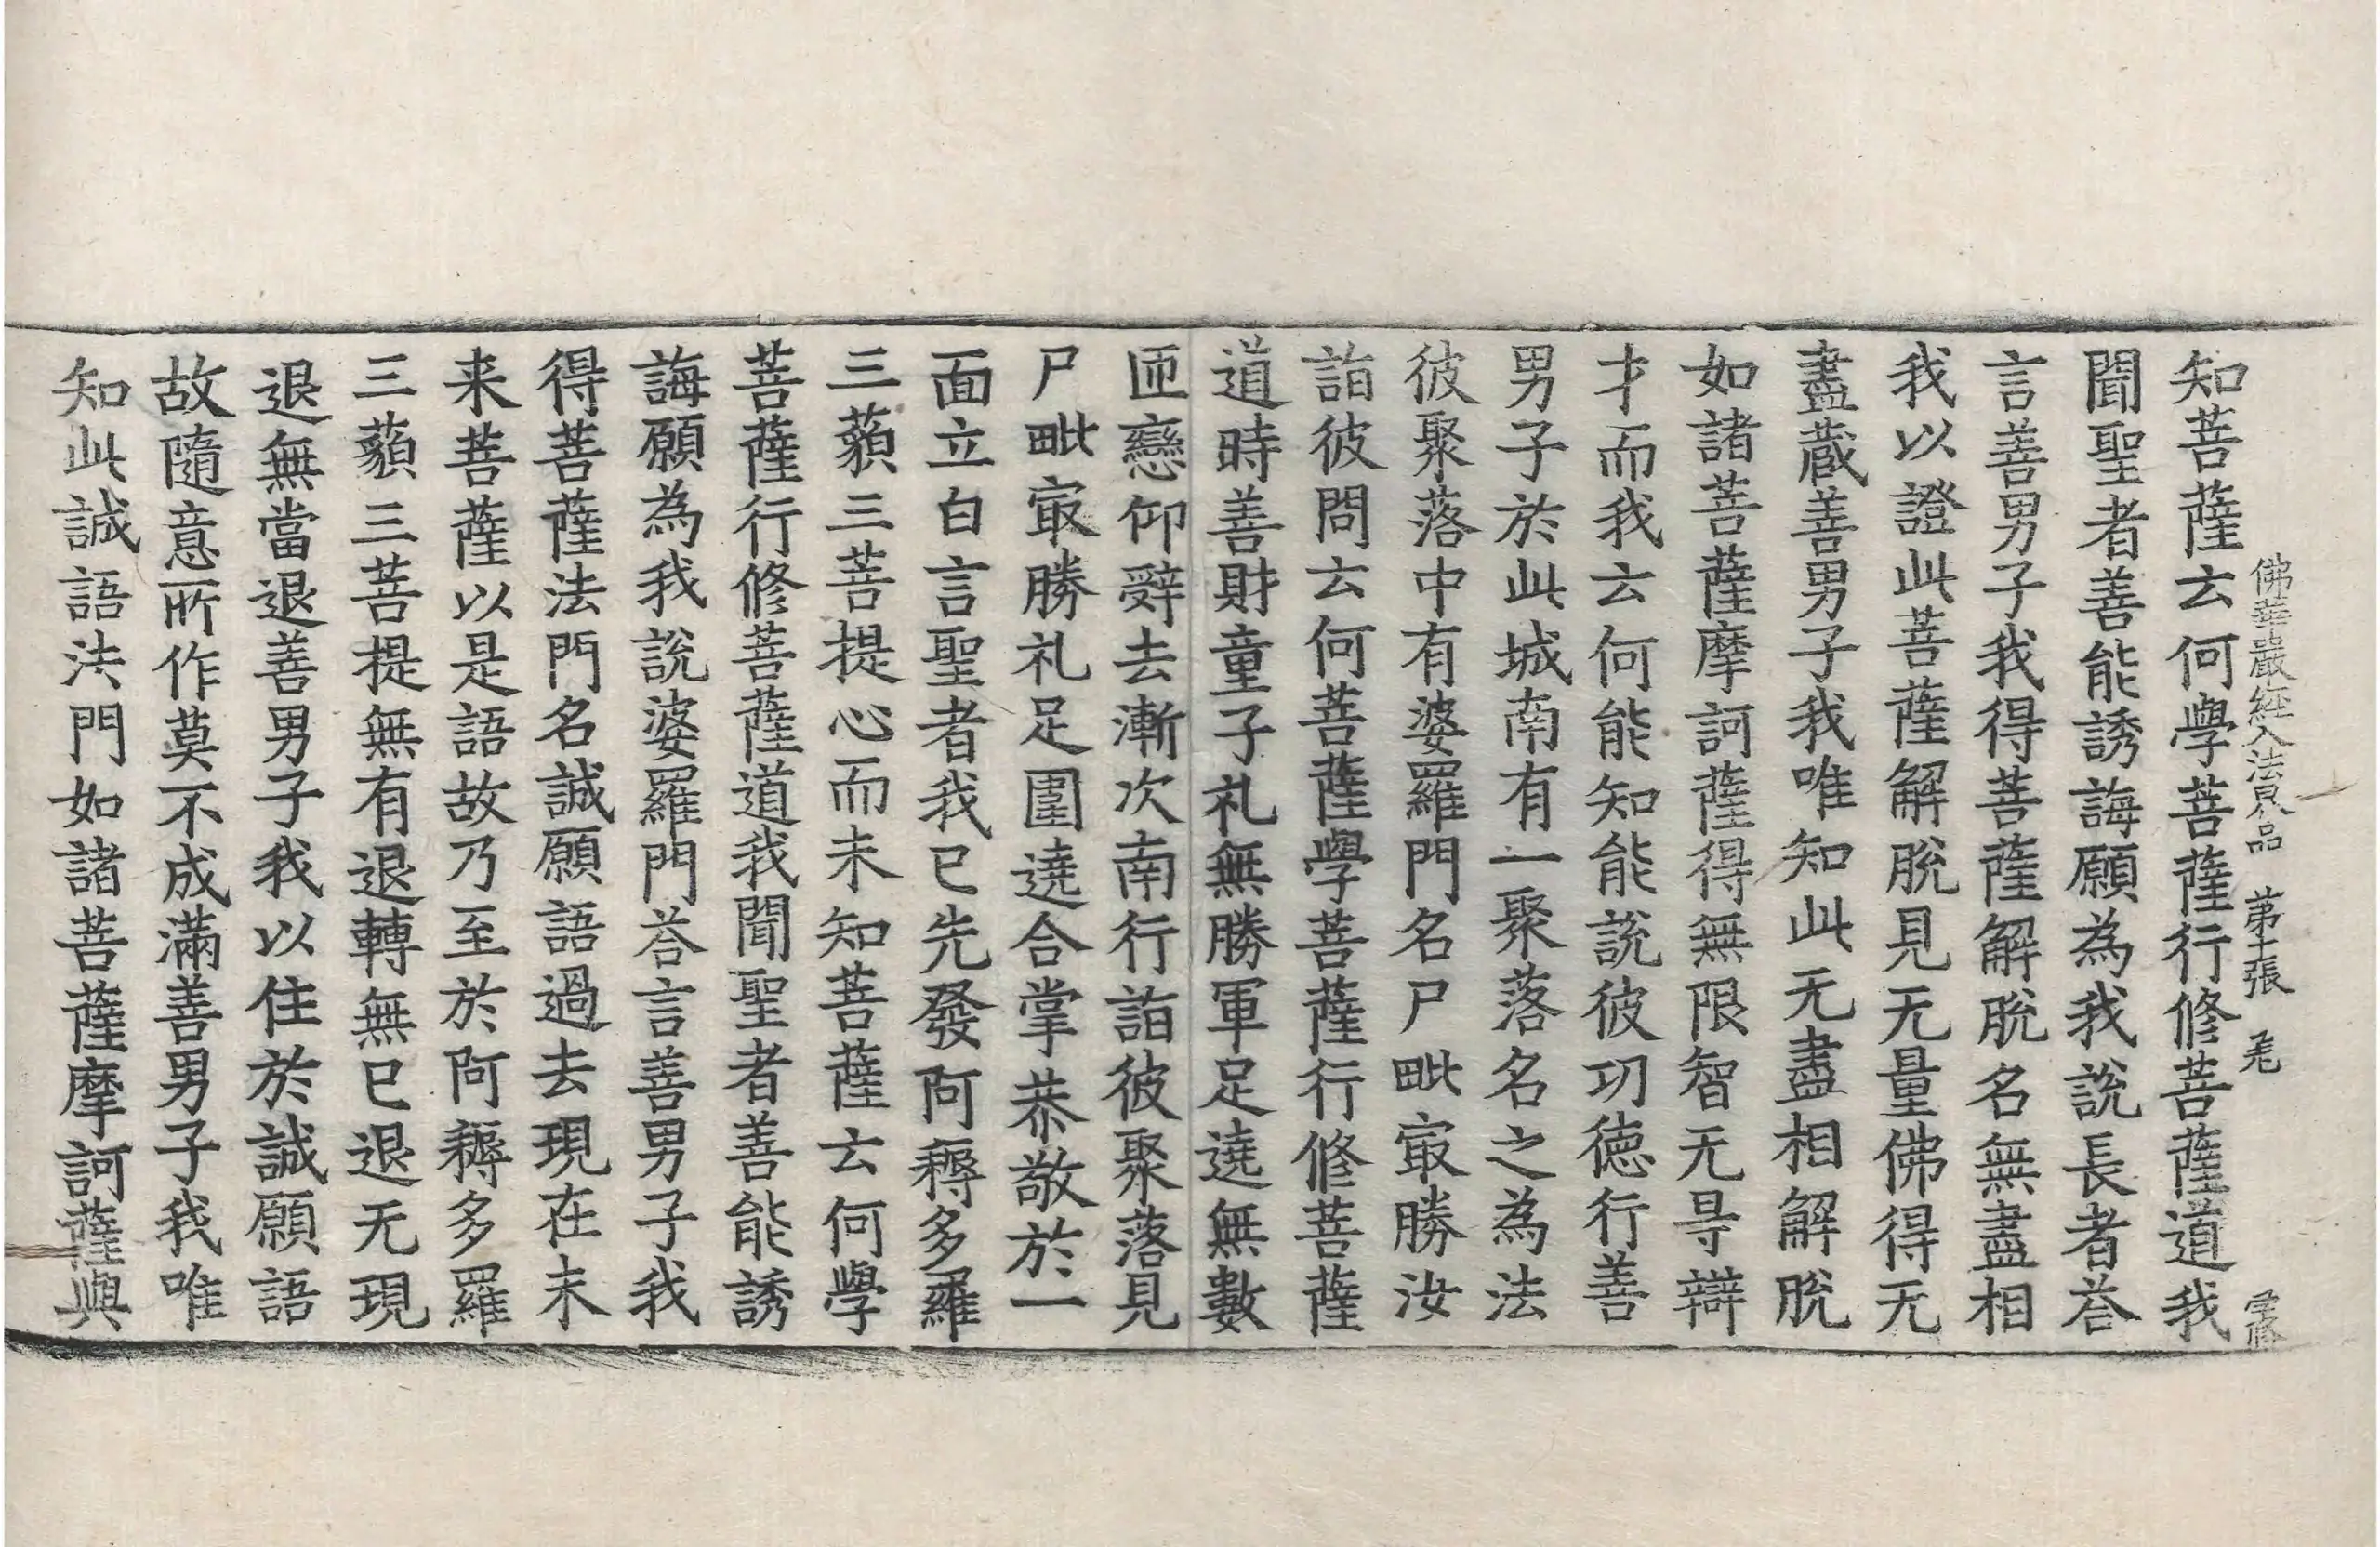 佛華嚴經入法界品 第十張 毛
知菩薩云何學菩薩行修菩薩道我
聞聖者善能誘誨願為我說長者荅
言善男子我得菩薩解脫名無盡相
我以證此菩薩解脫見无量佛得无
盡蔵善男子我唯知此无盡相解脫
如諸菩薩摩訶薩得無限智无㝵辯
才而我云何能知能說彼功德行善
男子於此城南有一聚落名之為法
彼聚落中有婆羅門名尸毗㝡勝汝
詣彼問云何菩薩學菩薩行修菩薩
道時善財童子礼無勝軍足遶無數
匝戀仰辭去漸次南行詣彼聚落見
尸毗㝡勝礼足圍遶合掌恭敬於一
面立白言聖者我已先發阿耨多羅
三藐三菩提心而未知菩薩云何學
菩薩行修菩薩道我聞聖者善能誘
誨願為我說婆羅門荅言善男子我
得菩薩法門名誠願語過去現在未
来菩薩以是語故乃至於阿耨多羅
三藐三菩提無有退轉無已退无現
退無當退善男子我以住於誠願語
故隨意所作莫不成滿善男子我唯
知此誠語法門如諸菩薩摩訶薩與